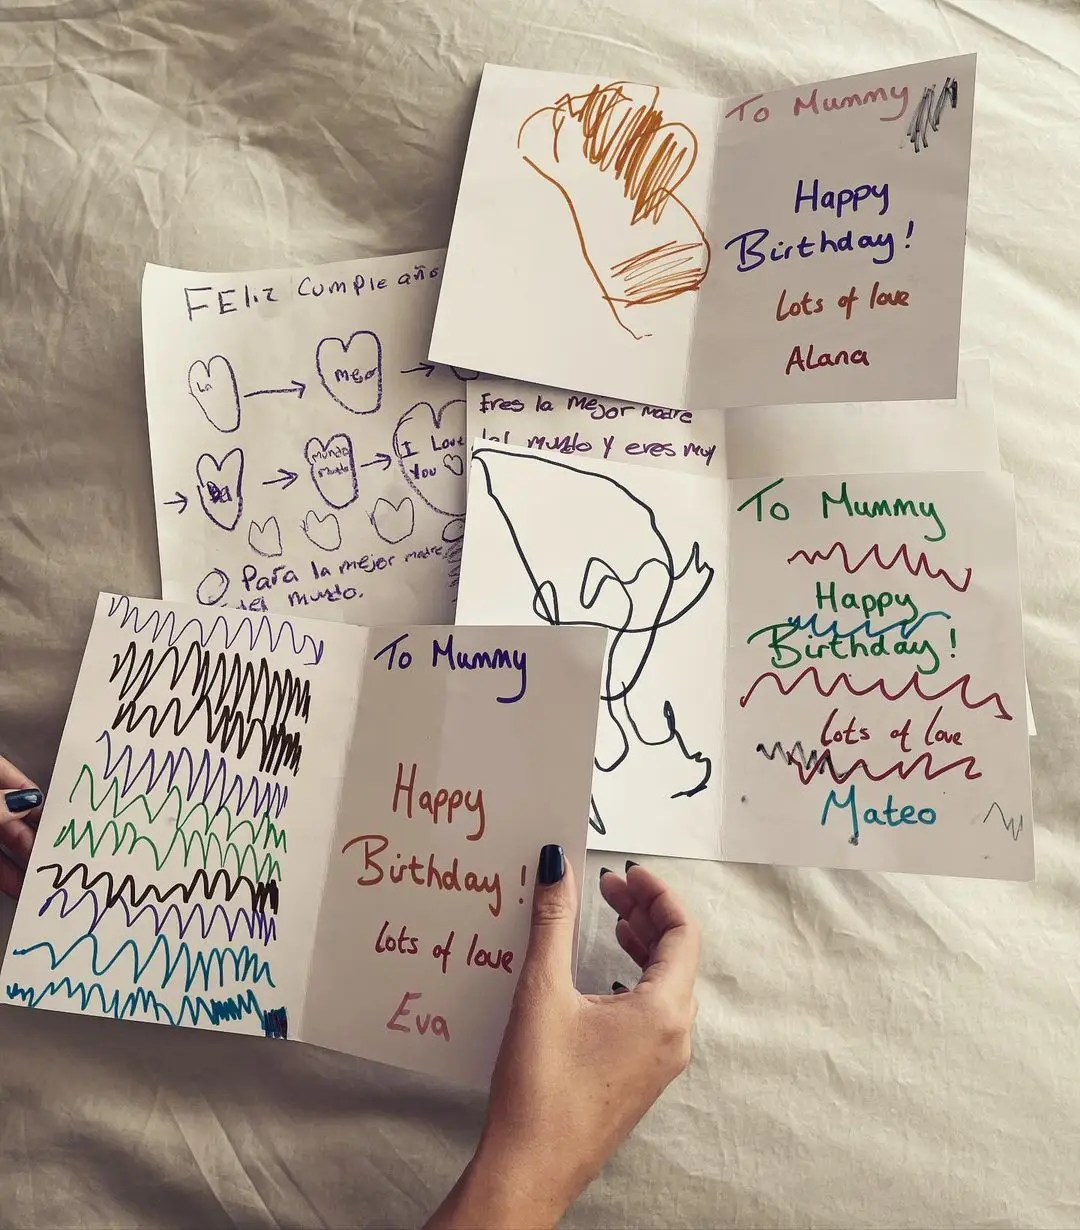 To Mummy
Happy
Birthday!
Lots of love
Alana
FELIZ Cumpleaño
La
Mejor
Eres la Mejor madre
del mundo y eres muy
MUNDO
I Love
You
Para la mejor madre
del mundo.
To Mummy
Happy
Birthday!
Lots of love
Mateo
To Mummy
Happy
Birthday!
Lots of love
Eva